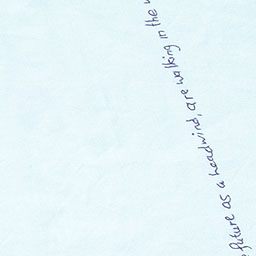 future as a headwind, are walking in the